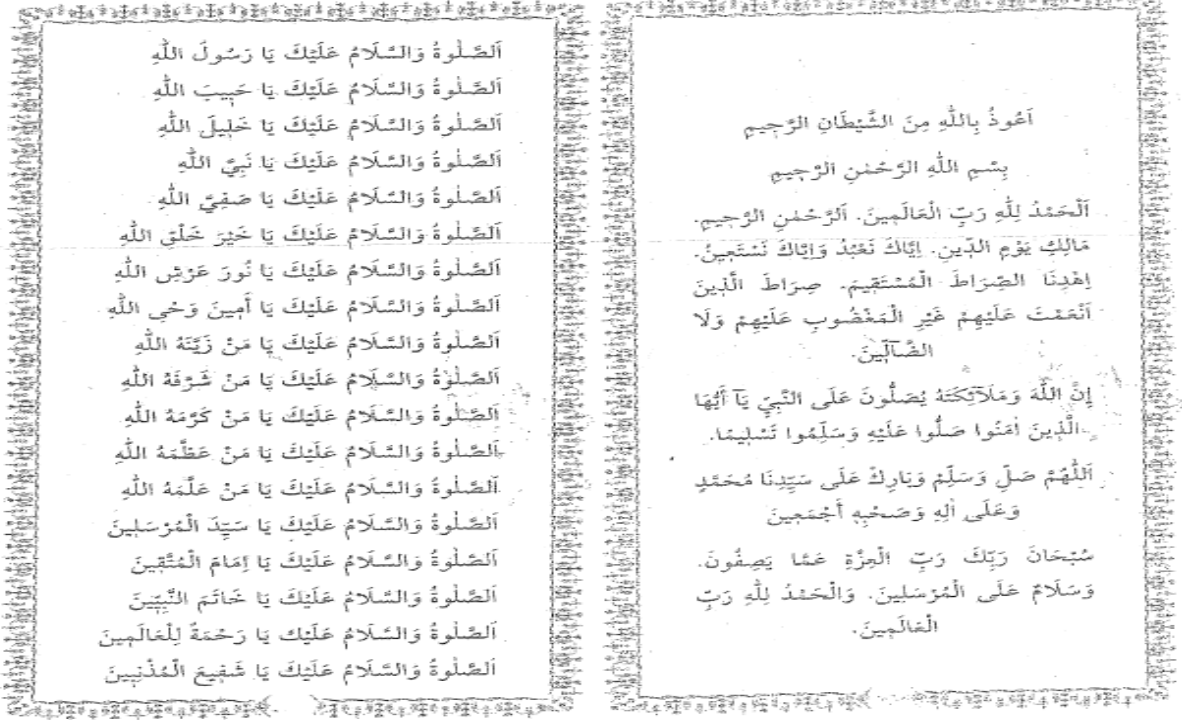 اَعُوذُ بِاللّٰهِ مِنَ الشَّيْطَانِ الرَّجٖيمِ
بِسْمِ اللّٰهِ الرَّحْمٰنِ الرَّحٖيمِ
اَلْحَمْدُ لِلّٰهِ رَبِّ الْعَالَمٖينَ. اَلرَّحْمٰنِ الرَّحٖيمِ.
مَالِكِ يَوْمِ الدّٖينِ. اِيَّاكَ نَعْبُدُ وَاِيَّاكَ نَسْتَعٖينُ.
اِهْدِنَا الصِّرَاطَ الْمُسْتَقٖيمَ. صِرَاطَ الَّذٖينَ
اَنْعَمْتَ عَلَيْهِمْ غَيْرِ الْمَغْضُوبِ عَلَيْهِمْ وَلَا
الضَّآلّٖينَ.
إِنَّ اللّٰهَ وَمَلَآئِكَتَهُ يُصَلُّونَ عَلَى النَّبِيِّ يَآ أَيُّهَا
الَّذٖينَ اٰمَنُوا صَلُّوا عَلَيْهِ وَسَلِّمُوا تَسْلٖيمًا.
اَللّٰهُمَّ صَلِّ وَسَلِّمْ وَبَارِكْ عَلَى سَيِّدِنَا مُحَمَّدٍ
وَعَلَى اٰلِهِ وَصَحْبِهِ أَجْمَعٖينَ
سُبْحَانَ رَبِّكَ رَبِّ الْعِزَّةِ عَمَّا يَصِفُونَ.
وَسَلَامٌ عَلَى الْمُرْسَلٖينَ. وَالْحَمْدُ لِلّٰهِ رَبِّ
الْعَالَمٖينَ.
اَلصَّلٰوةُ وَالسَّلَامُ عَلَيْكَ يَا رَسُولَ اللّٰهِ
اَلصَّلٰوةُ وَالسَّلَامُ عَلَيْكَ يَا حَبٖيبَ اللّٰهِ
اَلصَّلٰوةُ وَالسَّلَامُ عَلَيْكَ يَا خَلٖيلَ اللّٰهِ
اَلصَّلٰوةُ وَالسَّلَامُ عَلَيْكَ يَا نَبِيَّ اللّٰهِ
اَلصَّلٰوةُ وَالسَّلَامُ عَلَيْكَ يَا صَفِيَّ اللّٰهِ
اَلصَّلٰوةُ وَالسَّلَامُ عَلَيْكَ يَا خَيْرَ خَلْقِ اللّٰهِ
اَلصَّلٰوةُ وَالسَّلَامُ عَلَيْكَ يَا نُورَ عَرْشِ اللّٰهِ
اَلصَّلٰوةُ وَالسَّلَامُ عَلَيْكَ يَا أَمٖينَ وَحْىِ اللّٰهِ
اَلصَّلٰوةُ وَالسَّلَامُ عَلَيْكَ يَا مَنْ زَيَّنَهُ اللّٰهِ
اَلصَّلٰوةُ وَالسَّلَامُ عَلَيْكَ يَا مَنْ شَرَّفَهُ اللّٰهِ
اَلصَّلٰوةُ وَالسَّلَامُ عَلَيْكَ يَا مَنْ كَرَّمَهُ اللّٰهِ
اَلصَّلٰوةُ وَالسَّلَامُ عَلَيْكَ يَا مَنْ عَظَّمَهُ اللّٰهِ
اَلصَّلٰوةُ وَالسَّلَامُ عَلَيْكَ يَا مَنْ عَلَّمَهُ اللّٰهِ
اَلصَّلٰوةُ وَالسَّلَامُ عَلَيْكَ يَا سَيِّدَ الْمُرْسَلٖينَ
اَلصَّلٰوةُ وَالسَّلَامُ عَلَيْكَ يَا اِمَامَ الْمُتَّقٖينَ
اَلصَّلٰوةُ وَالسَّلَامُ عَلَيْكَ يَا خَاتَمَ النَّبِيّٖينَ
اَلصَّلٰوةُ وَالسَّلَامُ عَلَيْكَ يَا رَحْمَةً لِلْعَالَمٖينَ
اَلصَّلٰوةُ وَالسَّلَامُ عَلَيْكَ يَا شَفٖيعَ الْمُذْنِبٖينَ